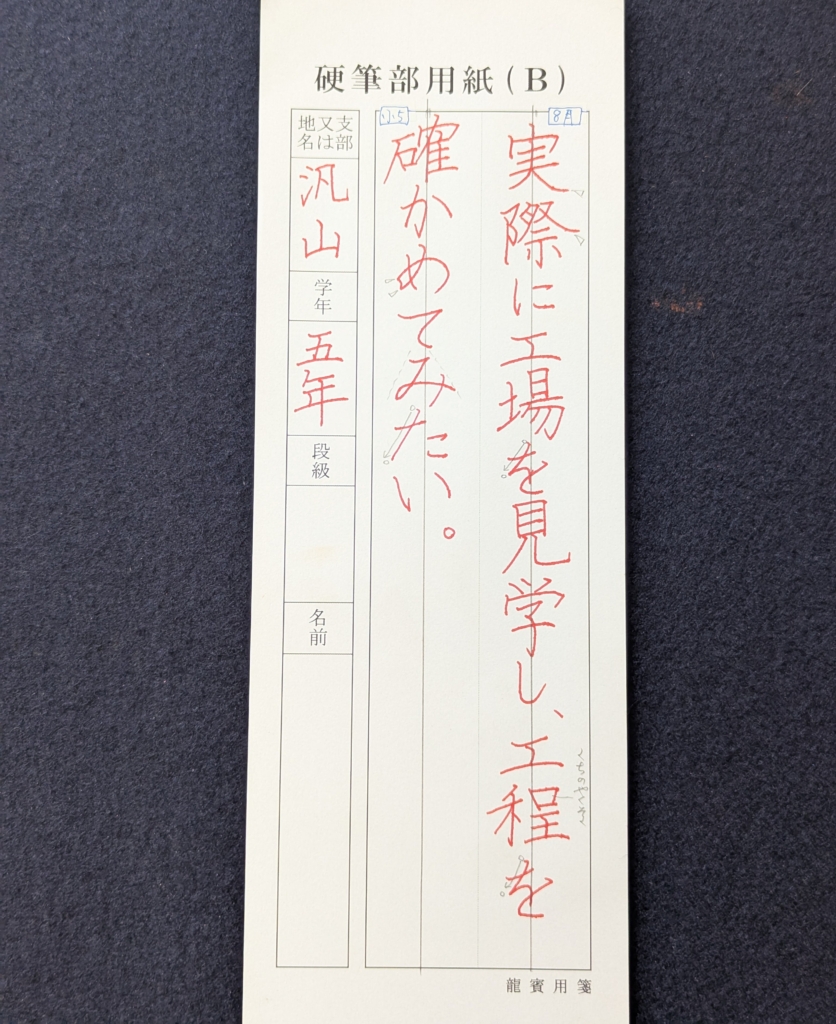 硬筆部用紙(B)
8月
小5
実際に工場を見学し、工程を
くちのやくそく
確かめてみたい。
支部又は地名
汎山
学年
五年
段級
名前
龍賓用箋